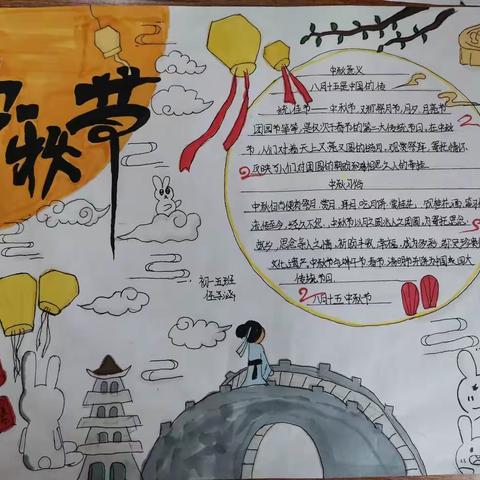 中秋节
中秋意义
八月十五是中国的传
统佳节——中秋节,又称祭月节、月夕、月亮节
团圆节等等,是仅次于春节的第二大传统节日,在中秋
节,人们对着天上又亮又圆的皓月,观赏祭拜,寄托情怀
反映了人们对团圆的期盼和相思之人的寄托
中秋习俗
中秋自古便有祭月、赏月、拜月、吃月饼、赏桂花、饮桂花酒等习俗
流传至今,经久不息,中秋节以月之圆兆人之团圆,为寄托思念
故乡,思念亲人之情,祈盼丰收、幸福,成为
文化遗产,中秋节与端午节、春节、清明节并称为中国四大
传统节日
八月十五中秋节
初一五班